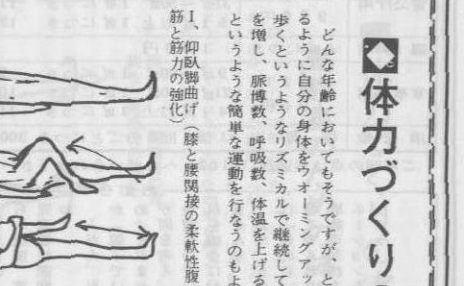 体力づくり
どんな年齢においてもそうですが、と
るように自分の身体をウオーミングアッ
歩くというようなリズミカルで継続して
を増し、脈博数、呼吸数、体温を上げる
というような簡単な運動を行なうのもよ
I、仰臥脚曲げ（膝と腰関接の柔軟性腹
筋と筋力の強化）